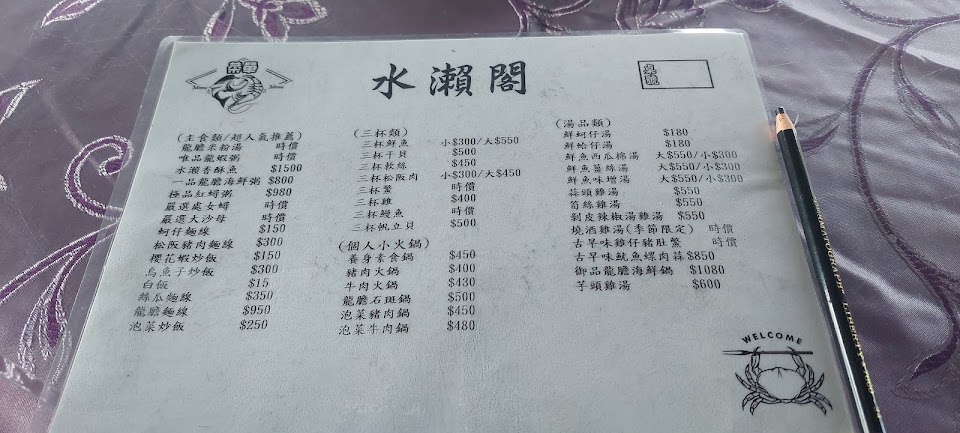 水瀨閣
桌號
(主食類/超人氣推薦)
龍膽米粉湯 時價
唯品龍蝦粥 時價
水瀨香酥魚 $1500
一品龍膽海鮮粥 $800
極品紅蟳粥 $980
嚴選處女蟳 時價
嚴選大沙母 時價
蚵仔麵線 $150
松阪豬肉麵線 $300
櫻花蝦炒飯 $150
烏魚子炒飯 $300
白飯 $15
絲瓜麵線 $350
龍膽麵線 $950
泡菜炒飯 $250
(三杯類)
三杯鮮魚 小$300/大$550
三杯干貝 $500
三杯軟絲 $450
三杯松阪肉 小$300/大$450
三杯鱉 時價
三杯雞 $400
三杯鰻魚 時價
三杯帆立貝 $500
(個人小火鍋)
養身素食鍋 $450
豬肉火鍋 $400
牛肉火鍋 $430
龍膽石斑鍋 $500
泡菜豬肉鍋 $450
泡菜牛肉鍋 $480
(湯品類)
鮮蚵仔湯 $180
鮮蛤仔湯 $180
鮮魚西瓜綿湯 大$550/小$300
鮮魚薑絲湯 大$550/小$300
鮮魚味增湯 大$550/小$300
蒜頭雞湯 $550
筍絲雞湯 $550
剝皮辣椒湯雞湯 $550
燒酒雞湯(季節限定) 時價
古早味雞仔豬肚鱉 時價
古早味魷魚螺肉蒜 $850
御品龍膽海鮮鍋 $1080
芋頭雞湯 $600
WELCOME